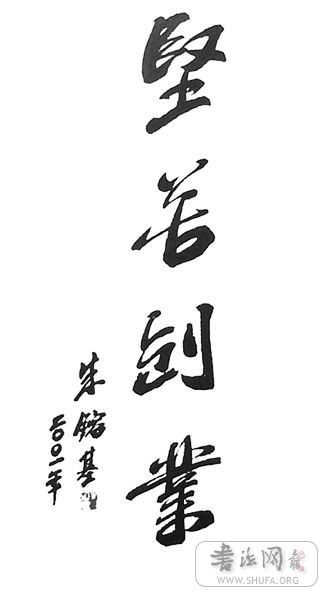 堅苦創業
朱鎔基
二〇〇一年
書法网
WWW.SHUFA.ORG